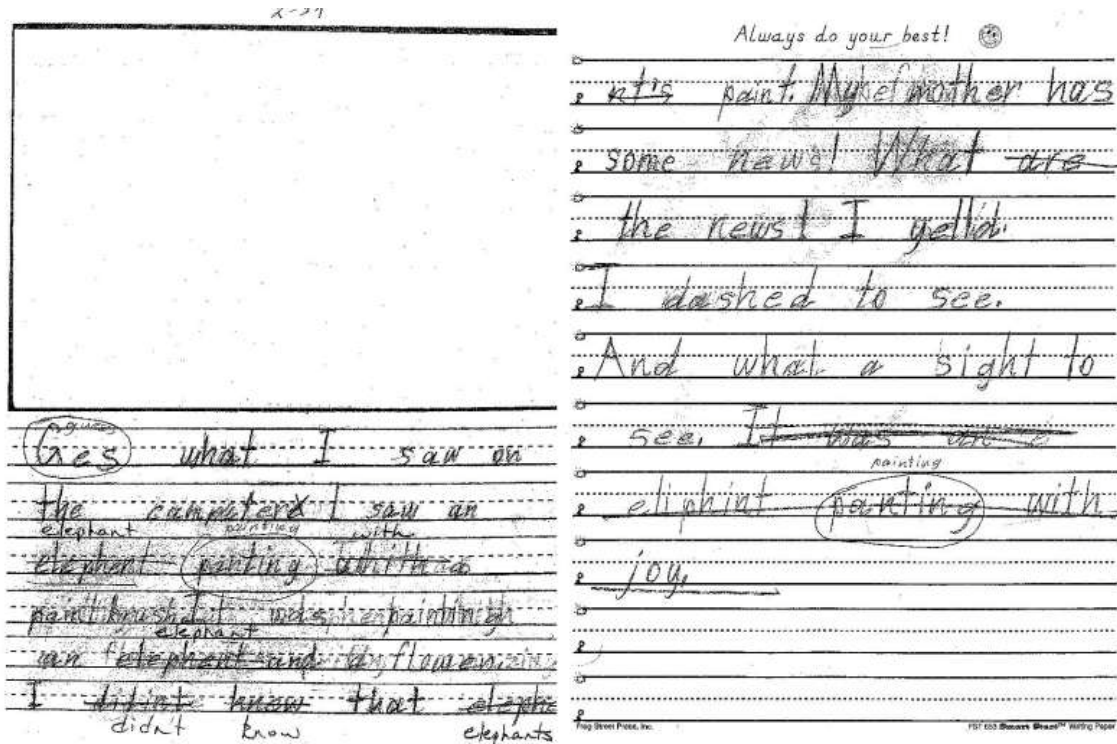 2-27
guess
Ges what I saw on
the computer I saw an
elephant painting with
elephent panting whith a
paintbrush It was painting
elephant
an elephent and flower
I didinte know that elepha
didn't know elephants
Always do your best!
nt's paint. My mother has
some news! What are
the news! I yell'd.
I dashed to see.
And what a sight to
see. It was an e
painting
eliphint panting with
joy.
Frog Street Press, Inc. FST 653 Smart Start™ Writing Paper